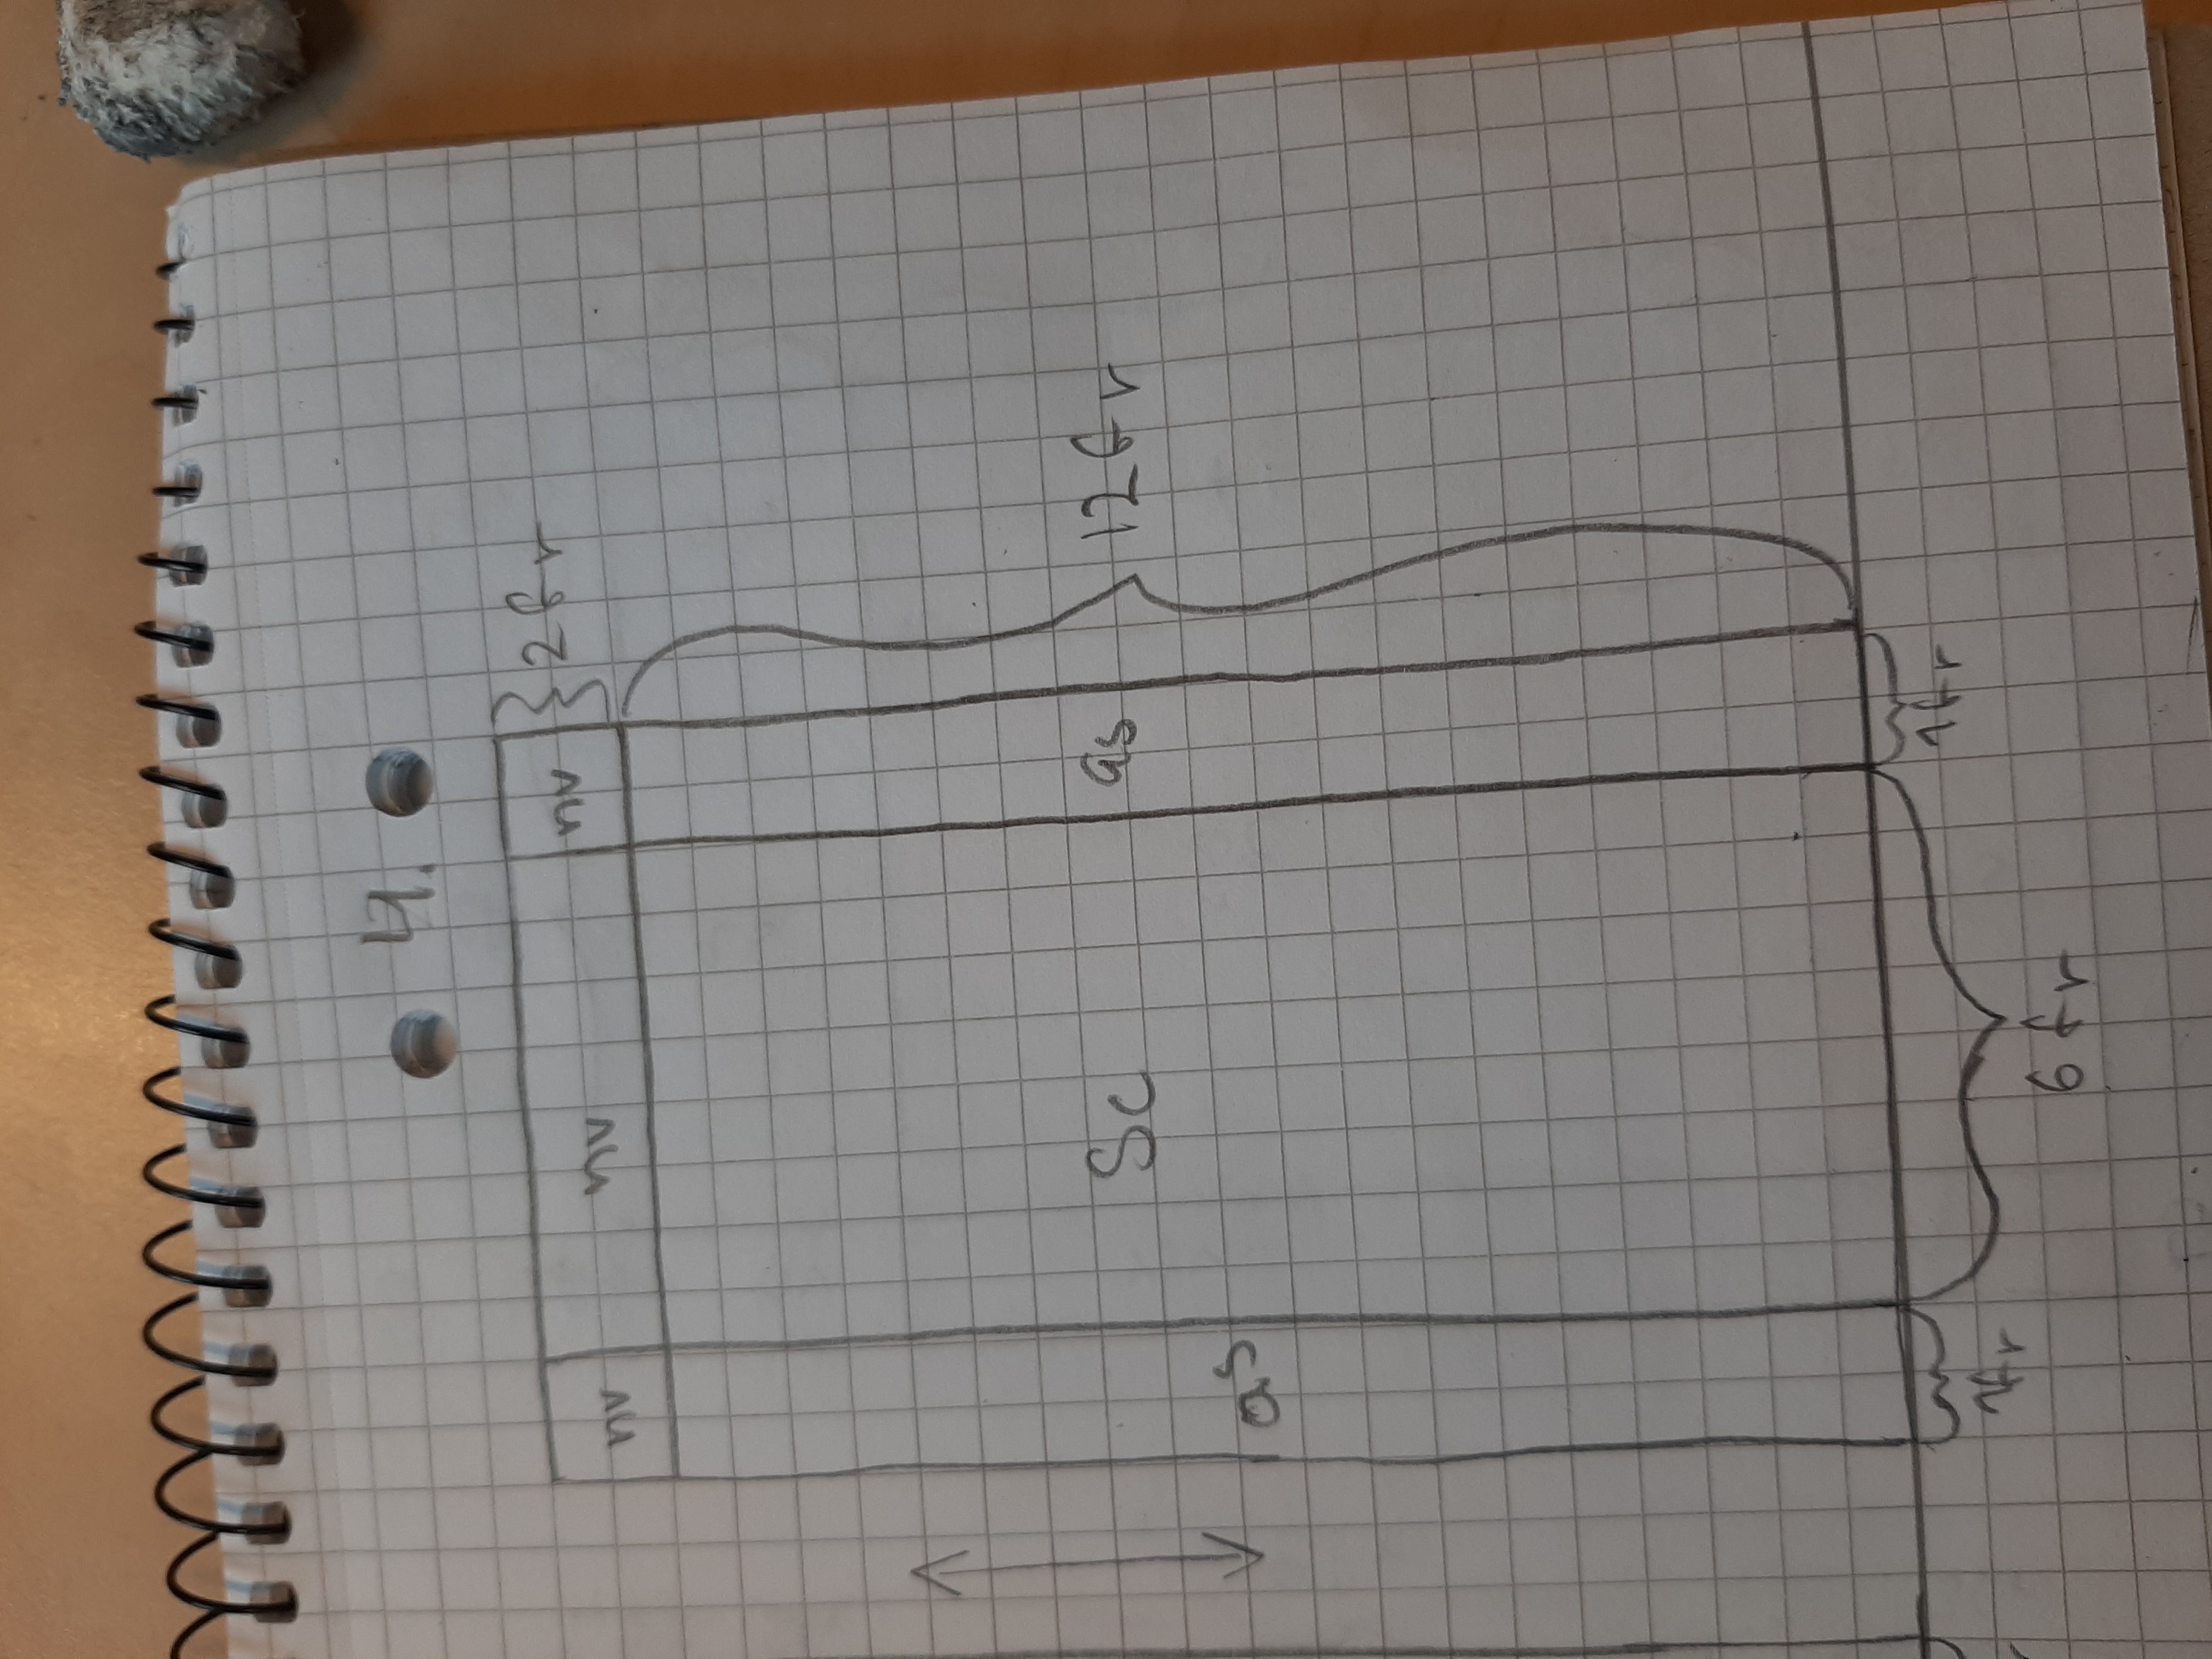 4.
nv nv nv 2fr
Sc as 12fr
as
1fr 6fr 1fr